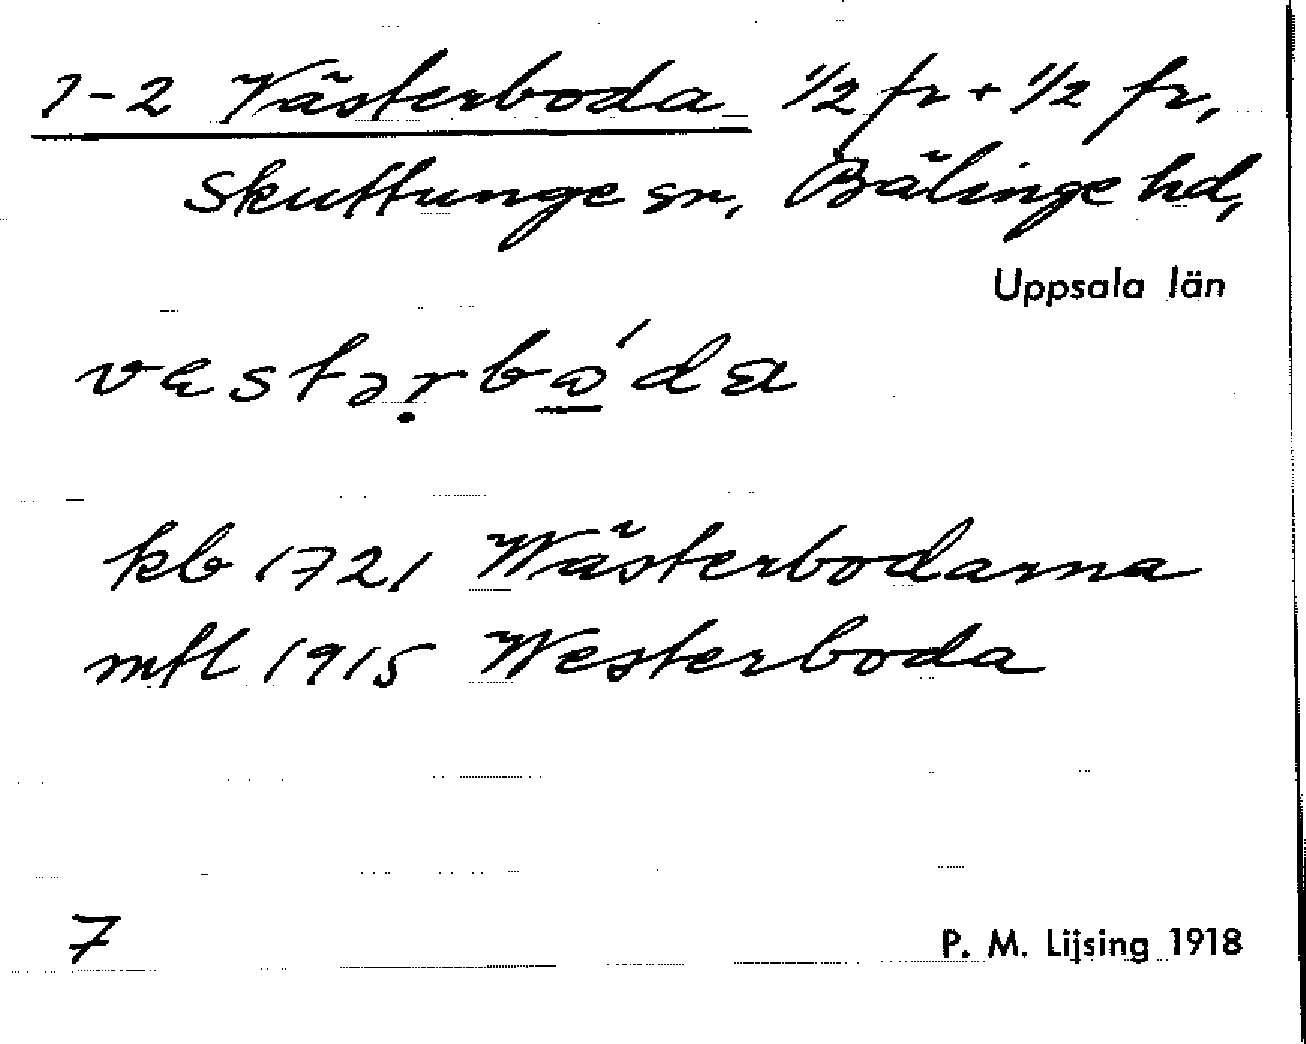 1-2 Västerboda ½ fr + ½ fr,
Skuttunge sn, Bälinge hd,
Uppsala län
vɑstəṛbo̲´da
kb 1721 Wästerbodarna
mtl 1915 Westerboda
7
P. M. Lijsing 1918